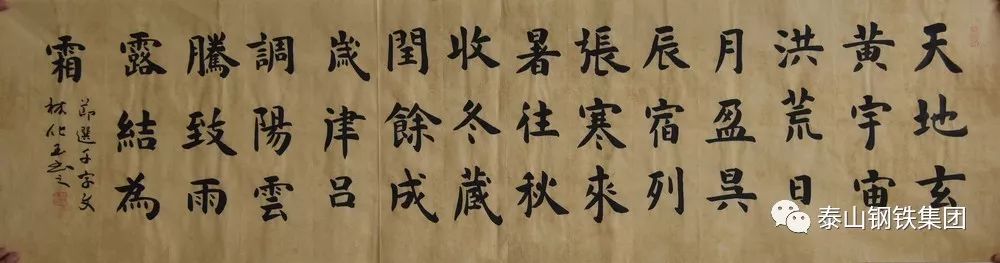 天地玄
黄宇宙
洪荒日
月盈昃
辰宿列
張寒來
暑往秋
收冬藏
閏餘成
歲律吕
調陽雲
騰致雨
露結為
霜
節選千字文
泰山钢铁集团